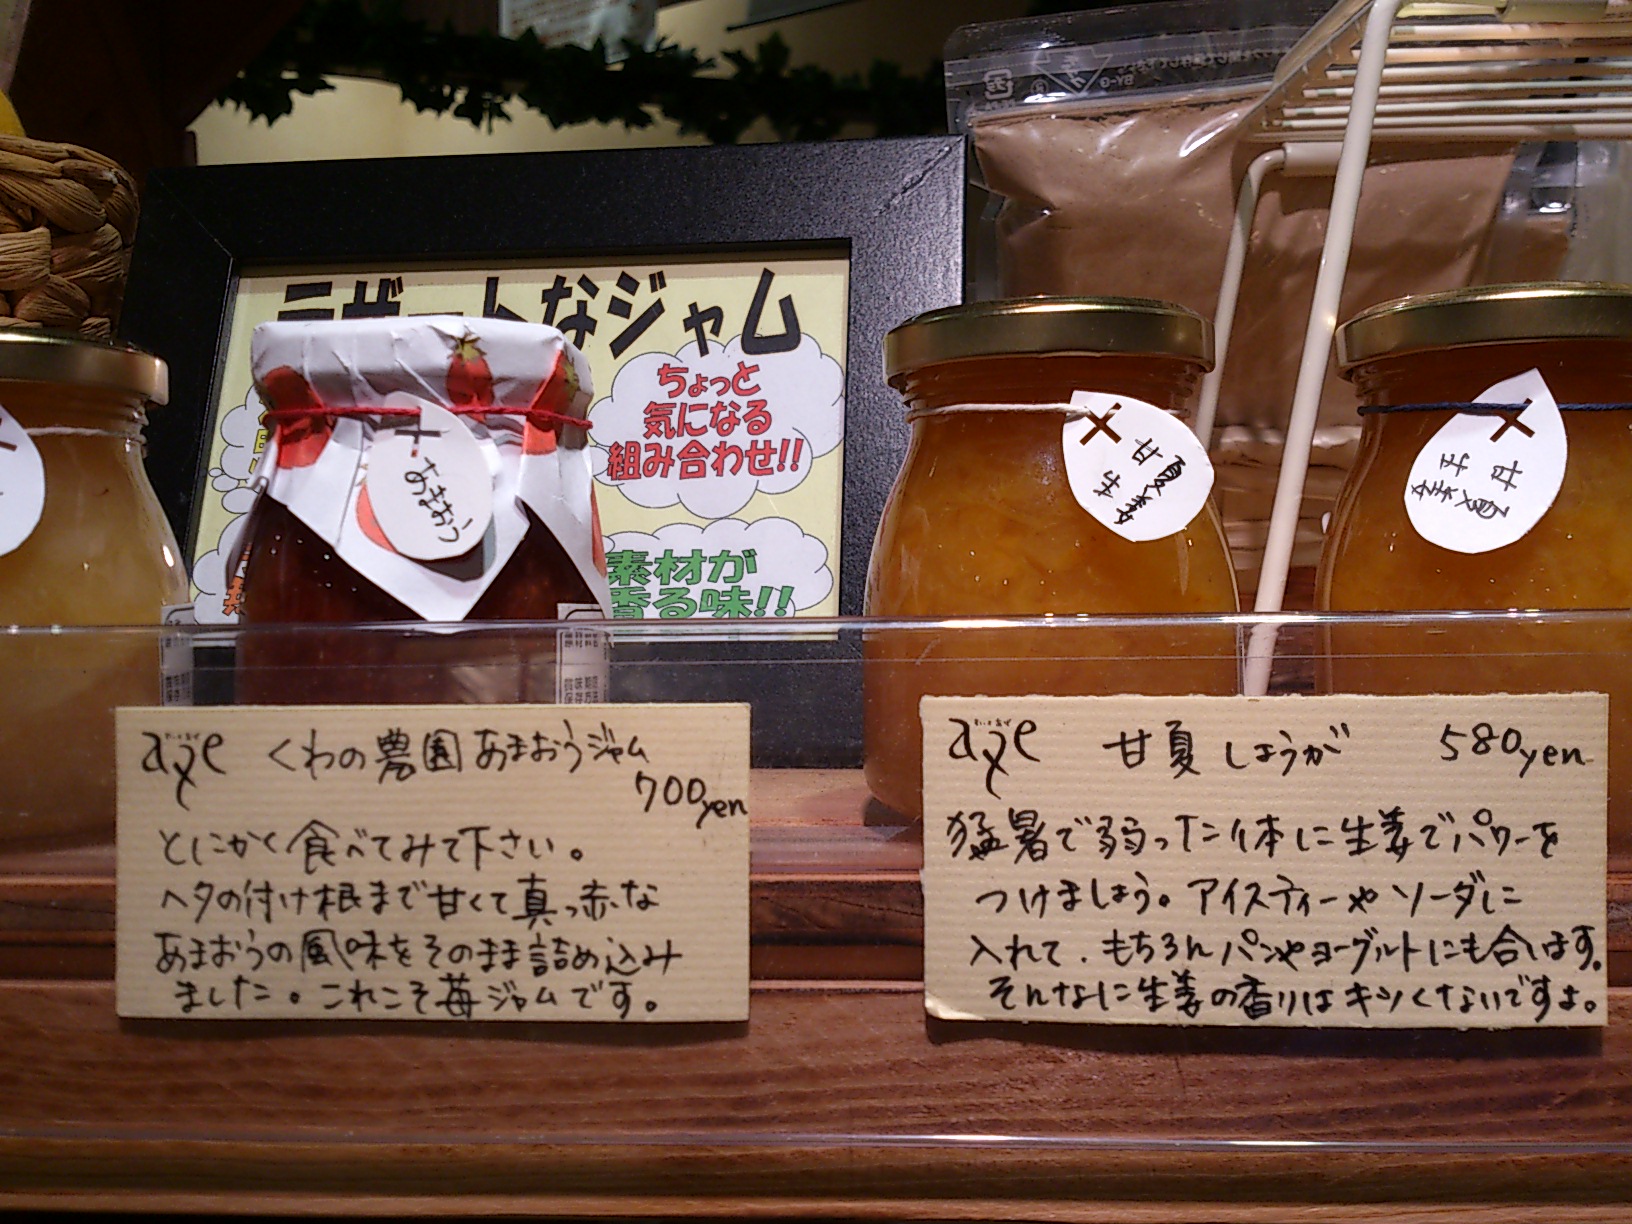 デザートなジャム
ちょっと
気になる
組み合わせ!!
素材が
香る味!!
あまおう
甘夏
生姜
BY-G
axe くわの農園 あまおうジャム
700yen
とにかく食べてみて下さい。
ヘタの付け根まで甘くて真っ赤な
あまおうの風味をそのまま詰め込み
ました。これこそ苺ジャムです。
axe 甘夏 しょうが 580yen
猛暑で弱った体に生姜でパワーを
つけましょう。アイスティーやソーダに
入れて、もちろんパンやヨーグルトにも合います。
そんなに生姜の香りはキツくないですよ。